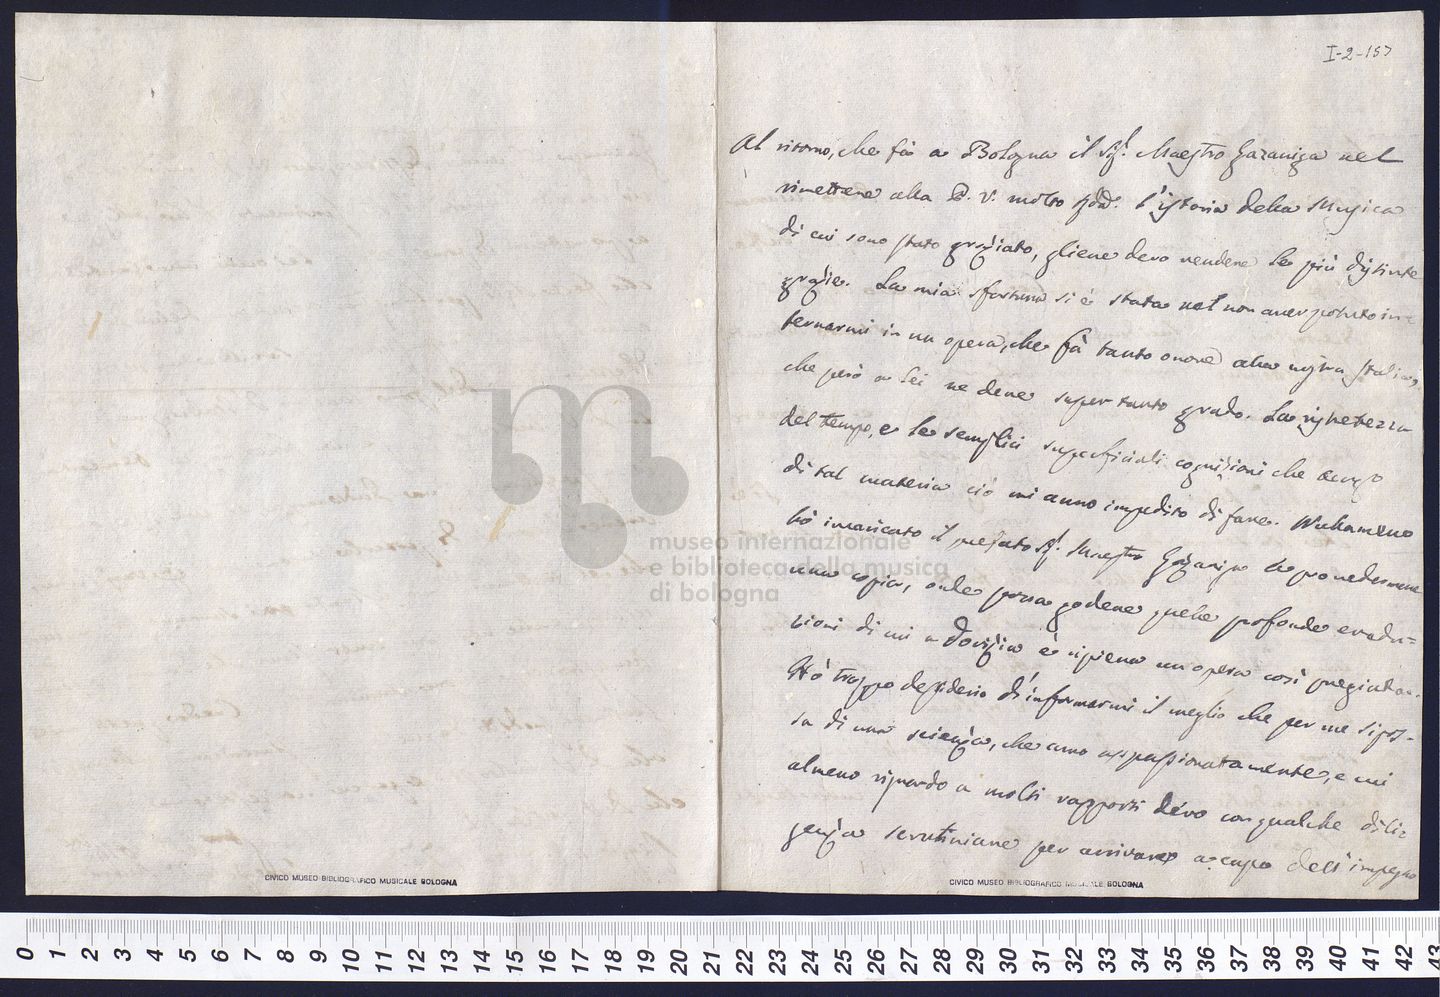 I-2-157
Al ritorno, che fà a Bologna il Sig.r Maestro Gazaniga nel
rimettere alla P. V. molto R.da l'istoria della Musica
di cui sono stato graziato, gliene devo rendere le più distinte
grazie. La mia sfortuna si è stata nel non aver potuto in
ternarmi in un opera, che fà tanto onore alla nostra Italia,
che però a lei ne deve saper tanto grado. La ristretezza
del tempo, e le semplici superficiali cognizioni che tengo
di tal materia ciò mi anno impedito di fare. Nullameno
hò incaricato il prefato Sig.r Maestro Gazaniga di provedermene
una copia, onde possa godere quelle profonde erudi=
zioni di cui a dovizia è ripiena un opera così pregiata.
Hò troppo desiderio d'informarmi il meglio che per me si pos-
sa di una scienza, che amo appassionatamente, e cui
almeno riguardo a molti rapporti devo con qualche dili
genza scrutiniare per arrivare a capo dell'impegno
museo internazionale
e biblioteca della musica
di bologna
CIVICO MUSEO BIBLIOGRAFICO MUSICALE BOLOGNA
CIVICO MUSEO BIBLIOGRAFICO MUSICALE BOLOGNA
0 1 2 3 4 5 6 7 8 9 10 11 12 13 14 15 16 17 18 19 20 21 22 23 24 25 26 27 28 29 30 31 32 33 34 35 36 37 38 39 40 41 42 43